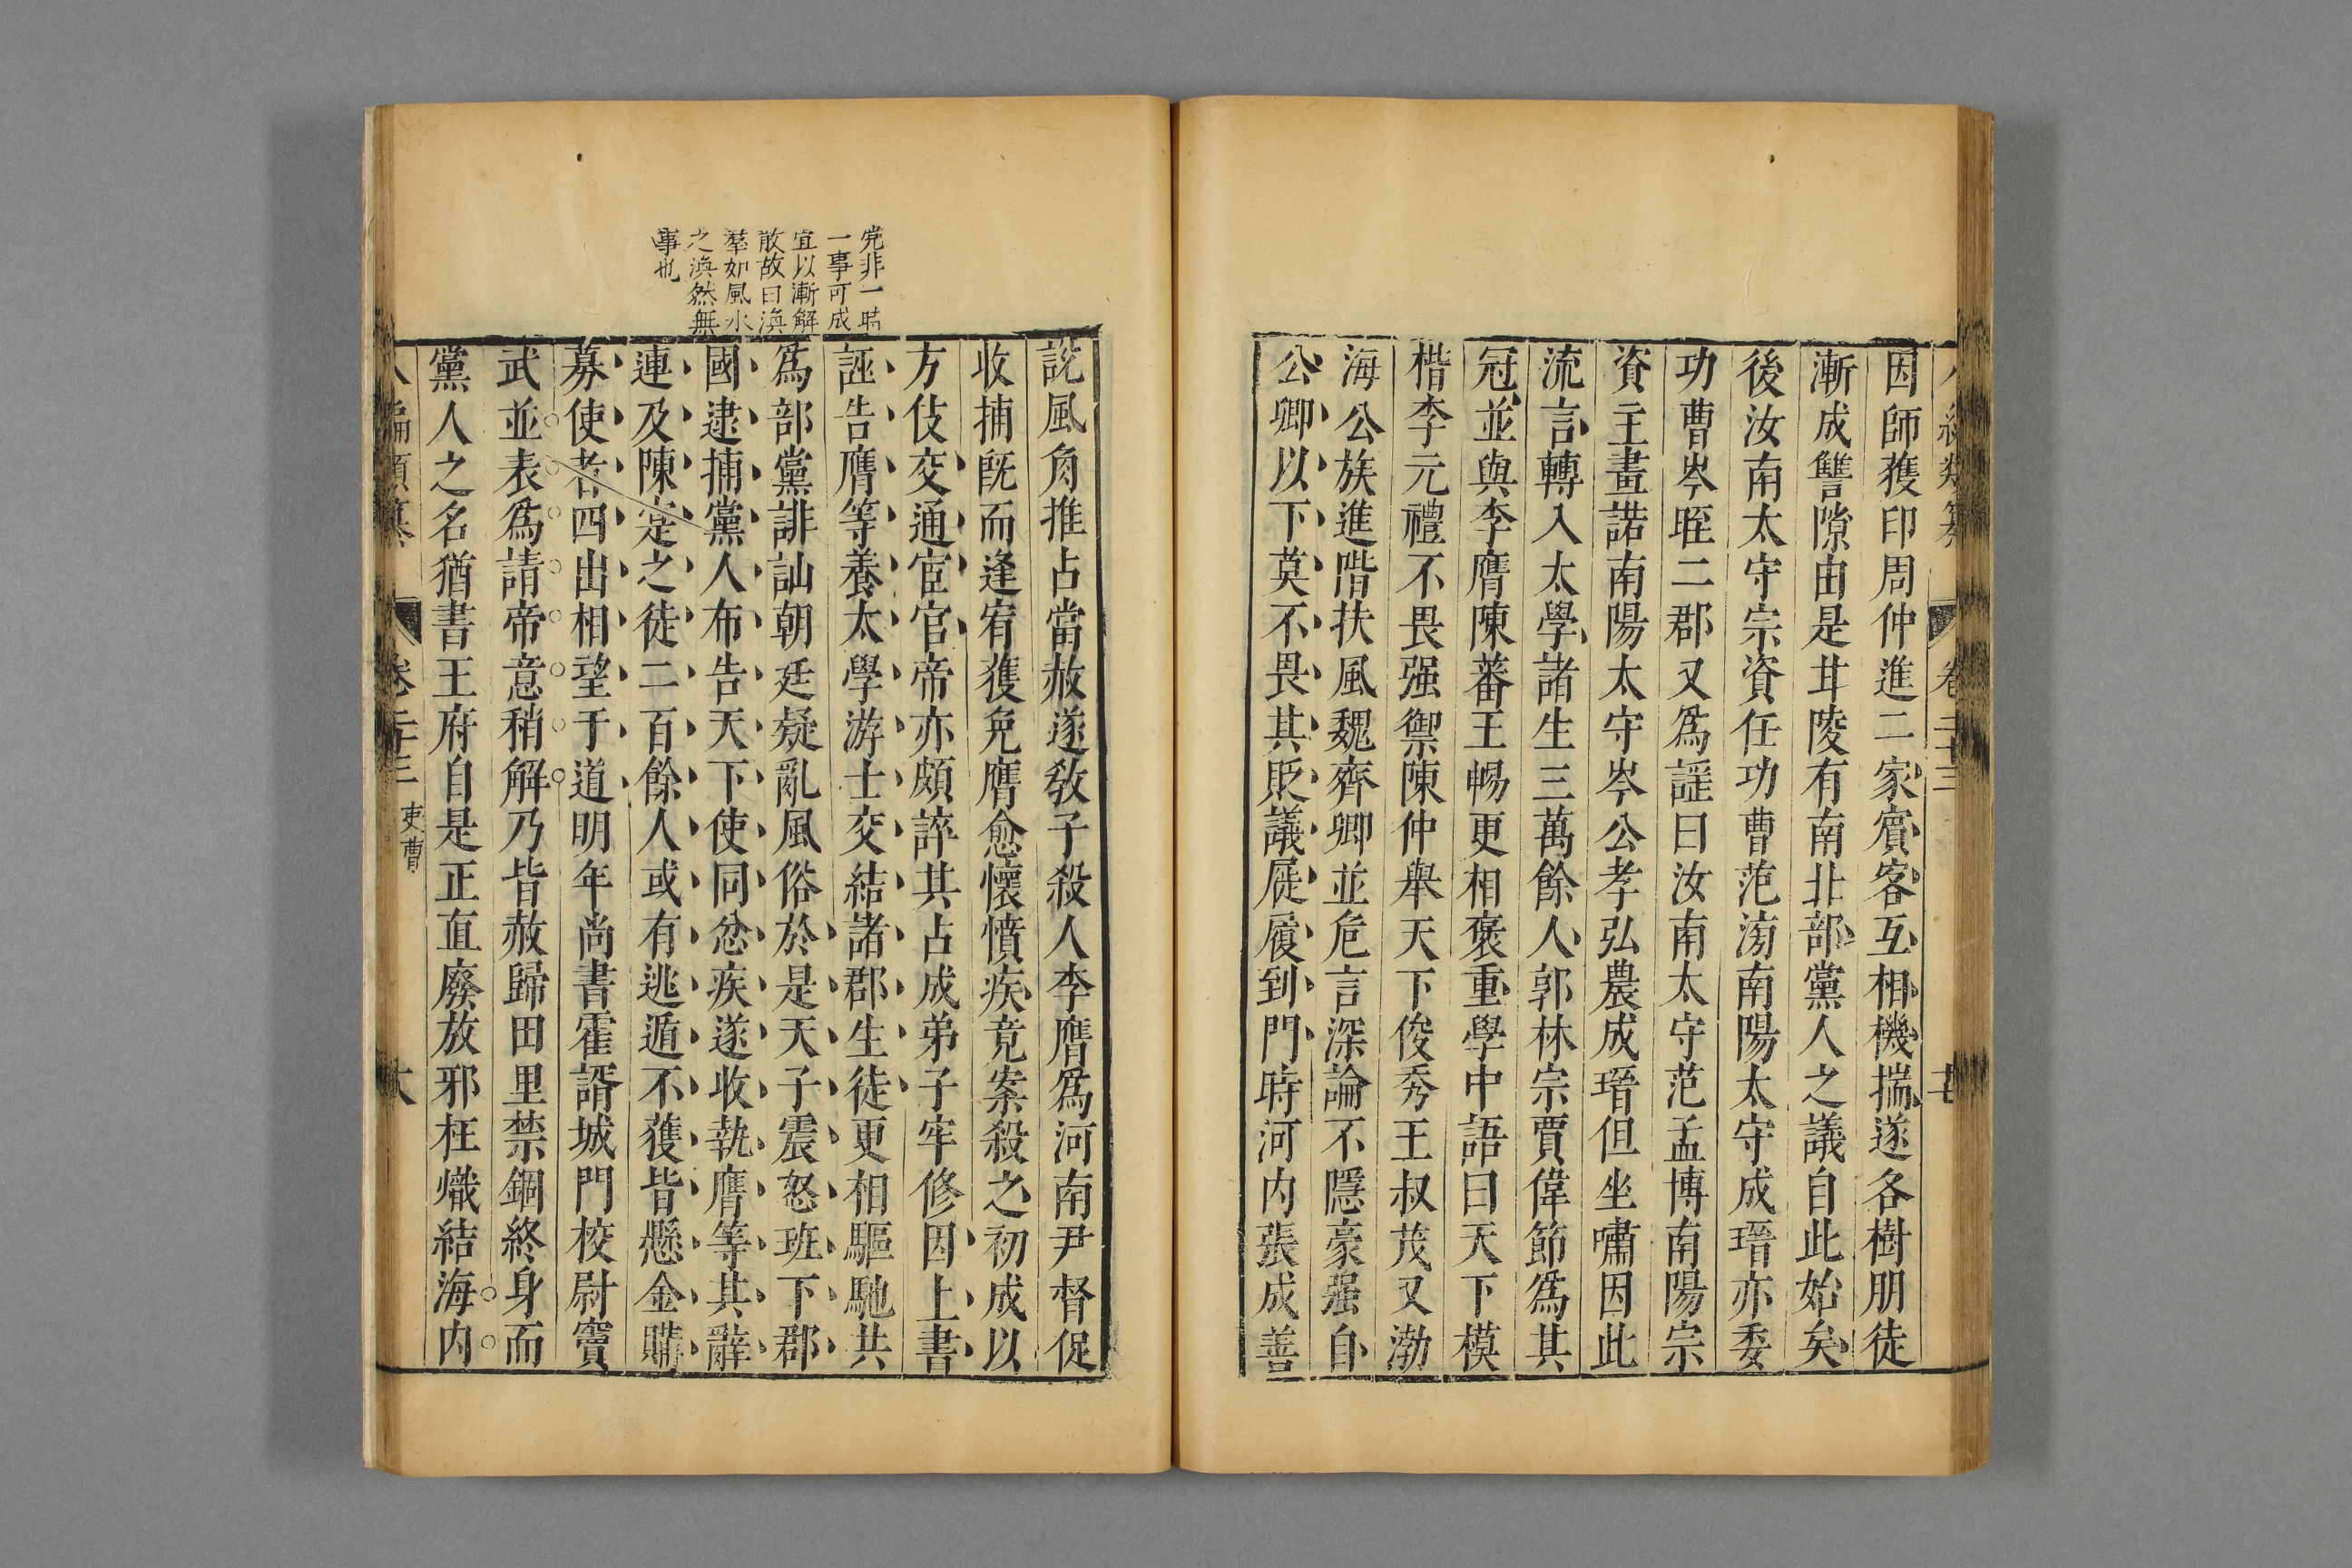 因師獲印周仲進二家賓客互相機揣遂各樹朋徒
漸成讐隙由是甘陵有南北部黨人之議自此始矣
後汝南太守宗資任功曹范滂南陽太守成瑨亦委
功曹岑晊二郡又爲謡曰汝南太守范孟博南陽宗
資主畫諾南陽太守岑公孝弘農成瑨但坐嘯因此
流言轉入太學諸生三萬餘人郭林宗賈偉節爲其
冠並與李膺陳蕃王暢更相褒重學中語曰天下模
楷李元禮不畏强禦陳仲舉天下俊秀王叔茂又渤
海公族進階扶風魏齊卿並危言深論不隱豪强自
公卿以下莫不畏其貶議屣履到門時河内張成善
説風角推占當赦遂敎子殺人李膺爲河南尹督促
收捕既而逢宥獲免膺愈懷憤疾竟案殺之初成以
方伎交通宦官帝亦頗誶其占成弟子牢修因上書
誣告膺等養太學游士交結諸郡生徒更相驅馳共
爲部黨誹訕朝廷疑亂風俗於是天子震怒班下郡
國逮捕黨人布告天下使同忿疾遂收執膺等其辭
連及陳寔之徒二百餘人或有逃遁不獲皆懸金購
募使者四出相望于道明年尚書霍諝城門校尉竇
武並表爲請帝意稍解乃皆赦歸田里禁錮終身而
黨人之名猶書王府自是正直廢放邪枉熾結海内
党非一時
一事可成
宜以漸解
散故曰渙
羣如風水
之渙然無
事也
編類纂 卷二十三 吏曹